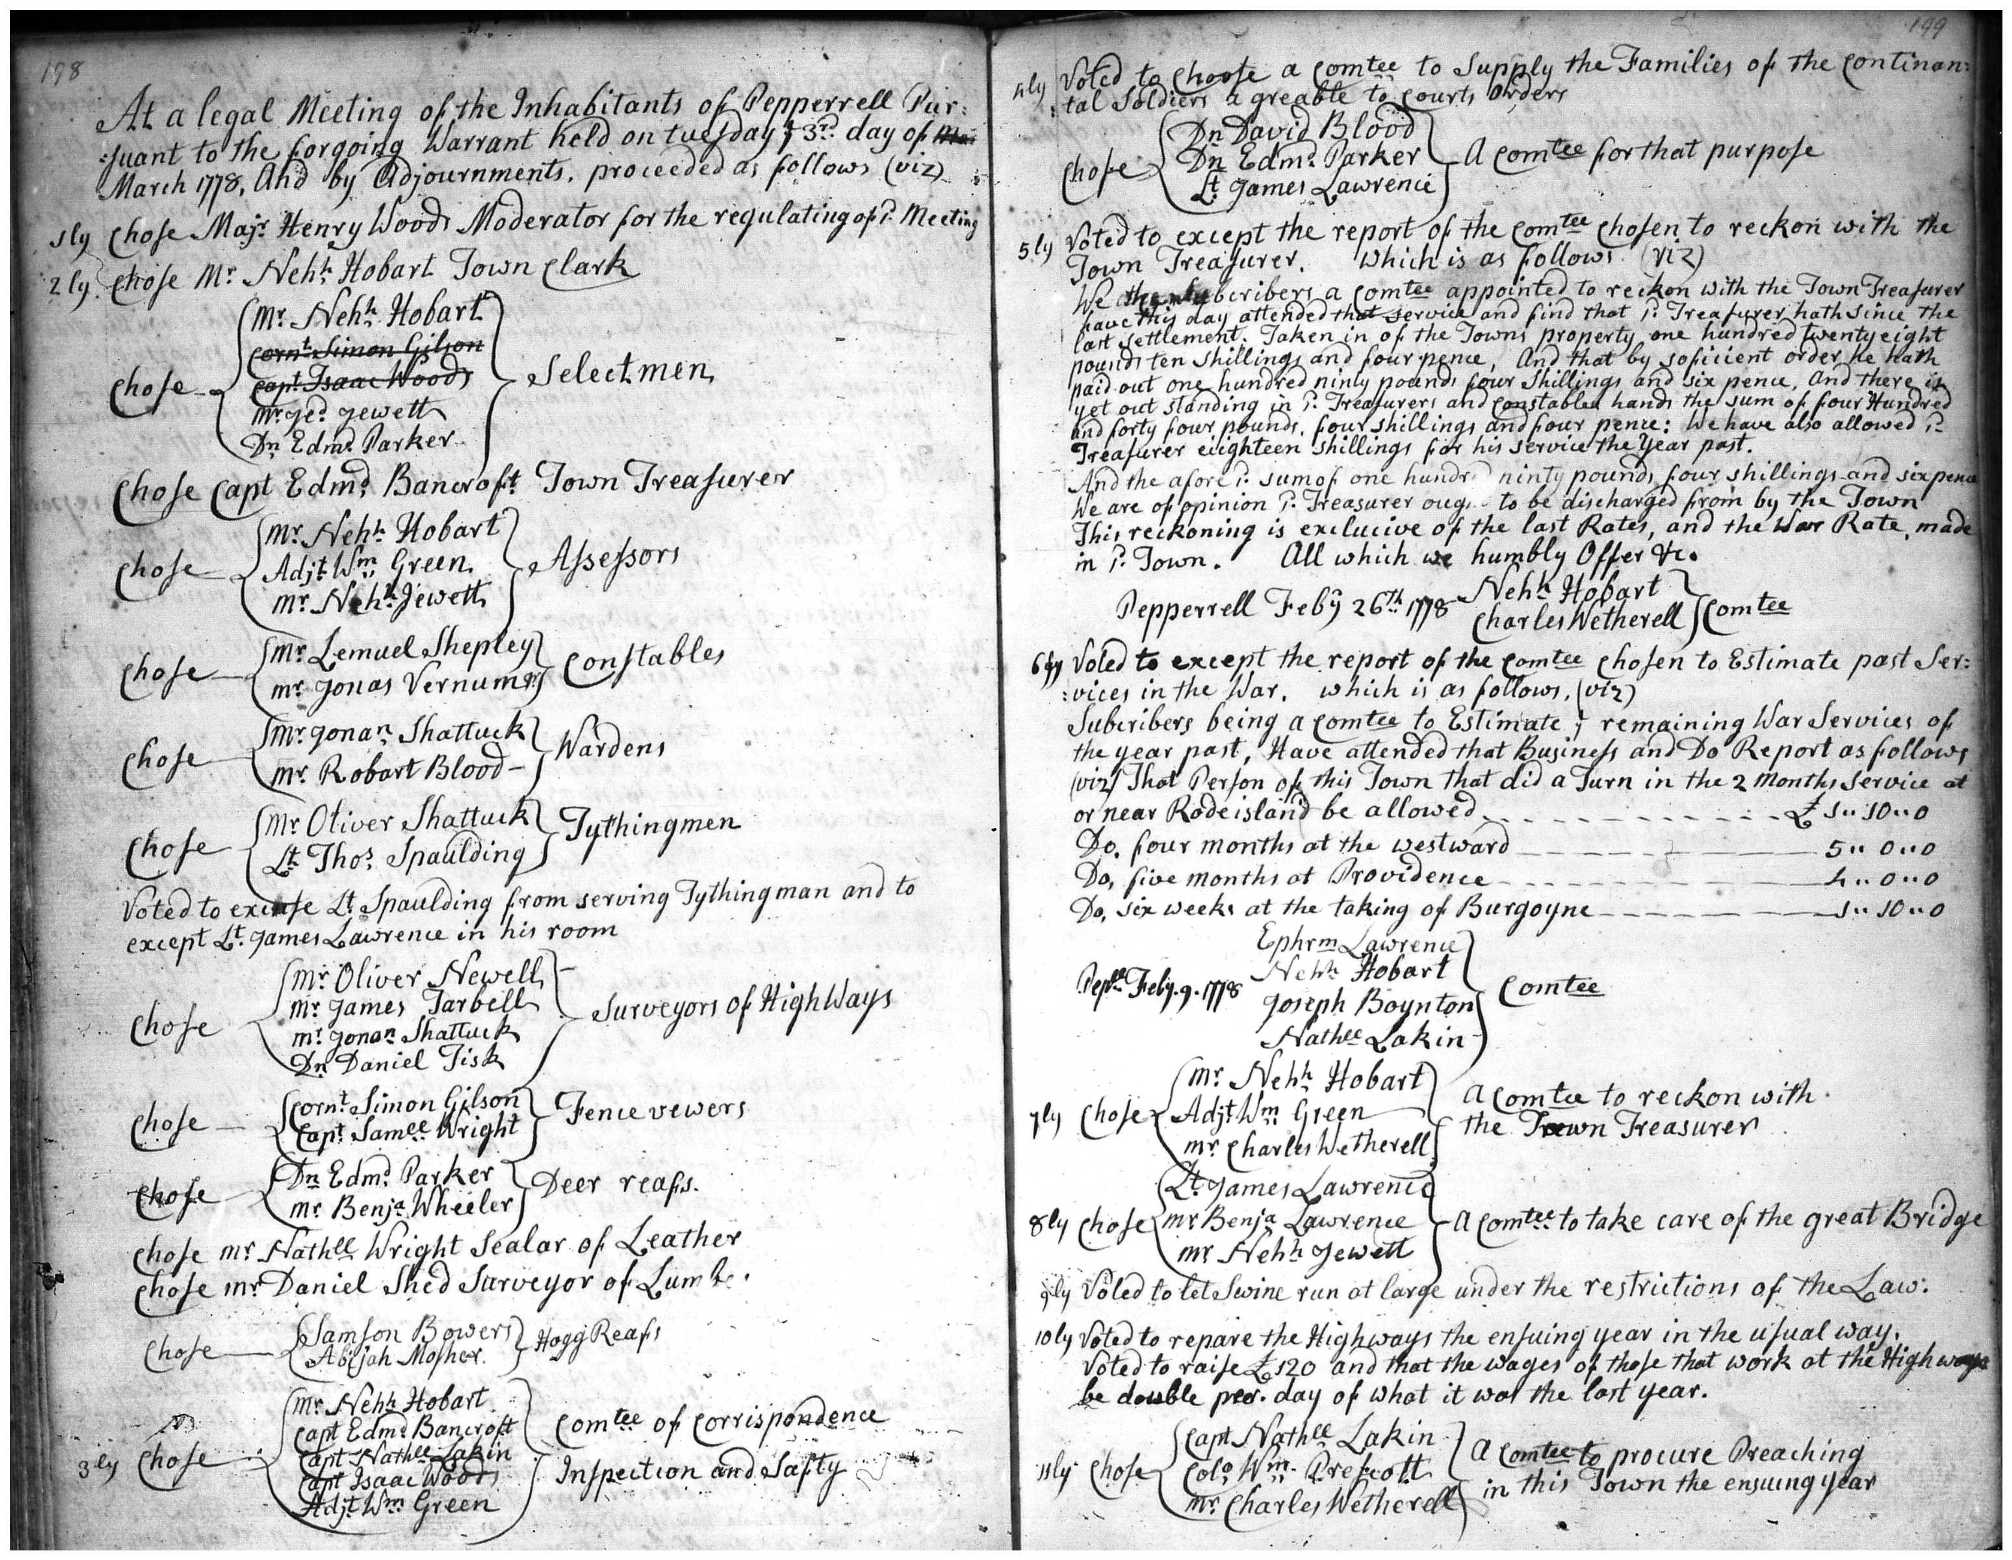 198
At a legal Meeting of the Inhabitants of Pepperrell Pur:
:suant to the forgoing Warrant held on tuesday ye 3rd day of
March 1778, And by Adjournments, proceeded as follows (viz)
1ly chose Majr Henry Woods Moderator for the regulating of sd Meeting
2ly chose Mr Nehh Hobart Town Clark
Mr Nehh Hobart
Cornt Simon Gilson
Capt Isaac Woods
chose Selectmen
mr Jed Jewett
Dn Edmd Parker
Chose Capt Edmd Bancroft Town Treasurer
Mr Nehh Hobart
chose Adjt Wm Green Assessors
mr Nehh Jewett
chose Mr Lemuel Shepley Constables
mr Jonas Vernum
chose Mr Jonan Shattuck Wardens
mr Robart Blood
chose Mr Oliver Shattuck Tythingmen
Lt Thos Spaulding
Voted to excuse Lt Spaulding from serving Tythingman and to
except Lt James Lawrence in his room
Mr Oliver Newell
mr James Tarbell
chose Surveyors of HighWays
mr Jonan Shattuck
Dn Daniel Fisk
chose Cornt Simon Gilson Fence vewers
Capt Samll Wright
chose Dn Edmd Parker Deer reafs.
mr Benja Wheeler
chose mr Nathll Wright Sealar of Leather
chose mr Daniel Shed Surveyor of
chose Samson Bowers Hogg Reafs
Abijah Mosher
Mr Nehh Hobart
Capt Edmd Bancroft Comtee of Corrispondence
3ly chose Capt Nathll Lakin
Capt Isaac Woods Inspection and Safty
Adjt Wm Green
199
4ly Voted to choose a Comtee to Supply the Families of the Continan:
:tal Soldiers agreable to Courts Orders
Dn David Blood
chose Dn Edmd Parker A Comtee for that purpose
Lt James Lawrence
5ly Voted to except the report of the Comtee chosen to reckon with the
Town Treasurer. Which is as follows (viz)
We the subcribers a Comtee appointed to reckon with the Town Treasurer
have this day attended that service and find that sd Treasurer hath since the
last settlement. Taken in of the Towns property one hundred twenty eight
pounds ten shillings and four pence, And that by soficient order he hath
paid out one hundred ninty pounds four Shillings and six pence, And there is
yet out standing in sd Treasurers and Constables hands the sum of four Hundred
and forty four pounds, four shillings and four pence: We have also allowed sd
Treasurer eighteen shillings for his service the Year past.
And the afore sd sum of one hundred ninty pounds four shillings and six pence
We are of opinion sd Treasurer to be discharged from by the Town
This reckoning is exclucive of the last Rates, and the War Rate, made
in sd Town. All which we humbly Offer &c.
Pepperrell Feby 26th 1778 Nehh Hobart
Charles Wetherell Comtee
6ly Voted to except the report of the Comtee chosen to Estimate past Ser:
:vices in the War. which is as follows, (viz)
Subcribers being a Comtee to Estimate ye remaining War Services of
the year past, Have attended that Business and Do Report as follows
(viz) That Person of this Town that did a Turn in the 2 months service at
or near Rodeisland be allowed £ 1"10"0
Do, four months at the westward 5"0"0
Do, five months at Providence 4"0"0
Do, six weeks at the taking of Burgoyne 1"10"0
Ephrm Lawrence
Nehh Hobart
Pepll Feby. 9. 1778 Comtee
Joseph Boynton
Nathll Lakin
Mr Nehh Hobart
7ly chose Adjt Wm Green A Comtee to reckon with
mr Charles Wetherell the Town Treasurer
Lt James Lawrence
8ly chose mr Benja Lawrence A Comtee to take care of the great Bridge
mr Nehh Jewett
9ly Voted to let Swine run at large under the restrictions of the Law.
10ly Voted to repare the Highways the ensuing year in the usual way.
Voted to raise £120 and that the wages of those that work at the Highways
be double per. day of what it was the last year.
Capt Nathll Lakin
11ly chose Colo Wm Prescott A Comtee to procure Preaching
mr Charles Wetherell in this Town the ensuing year